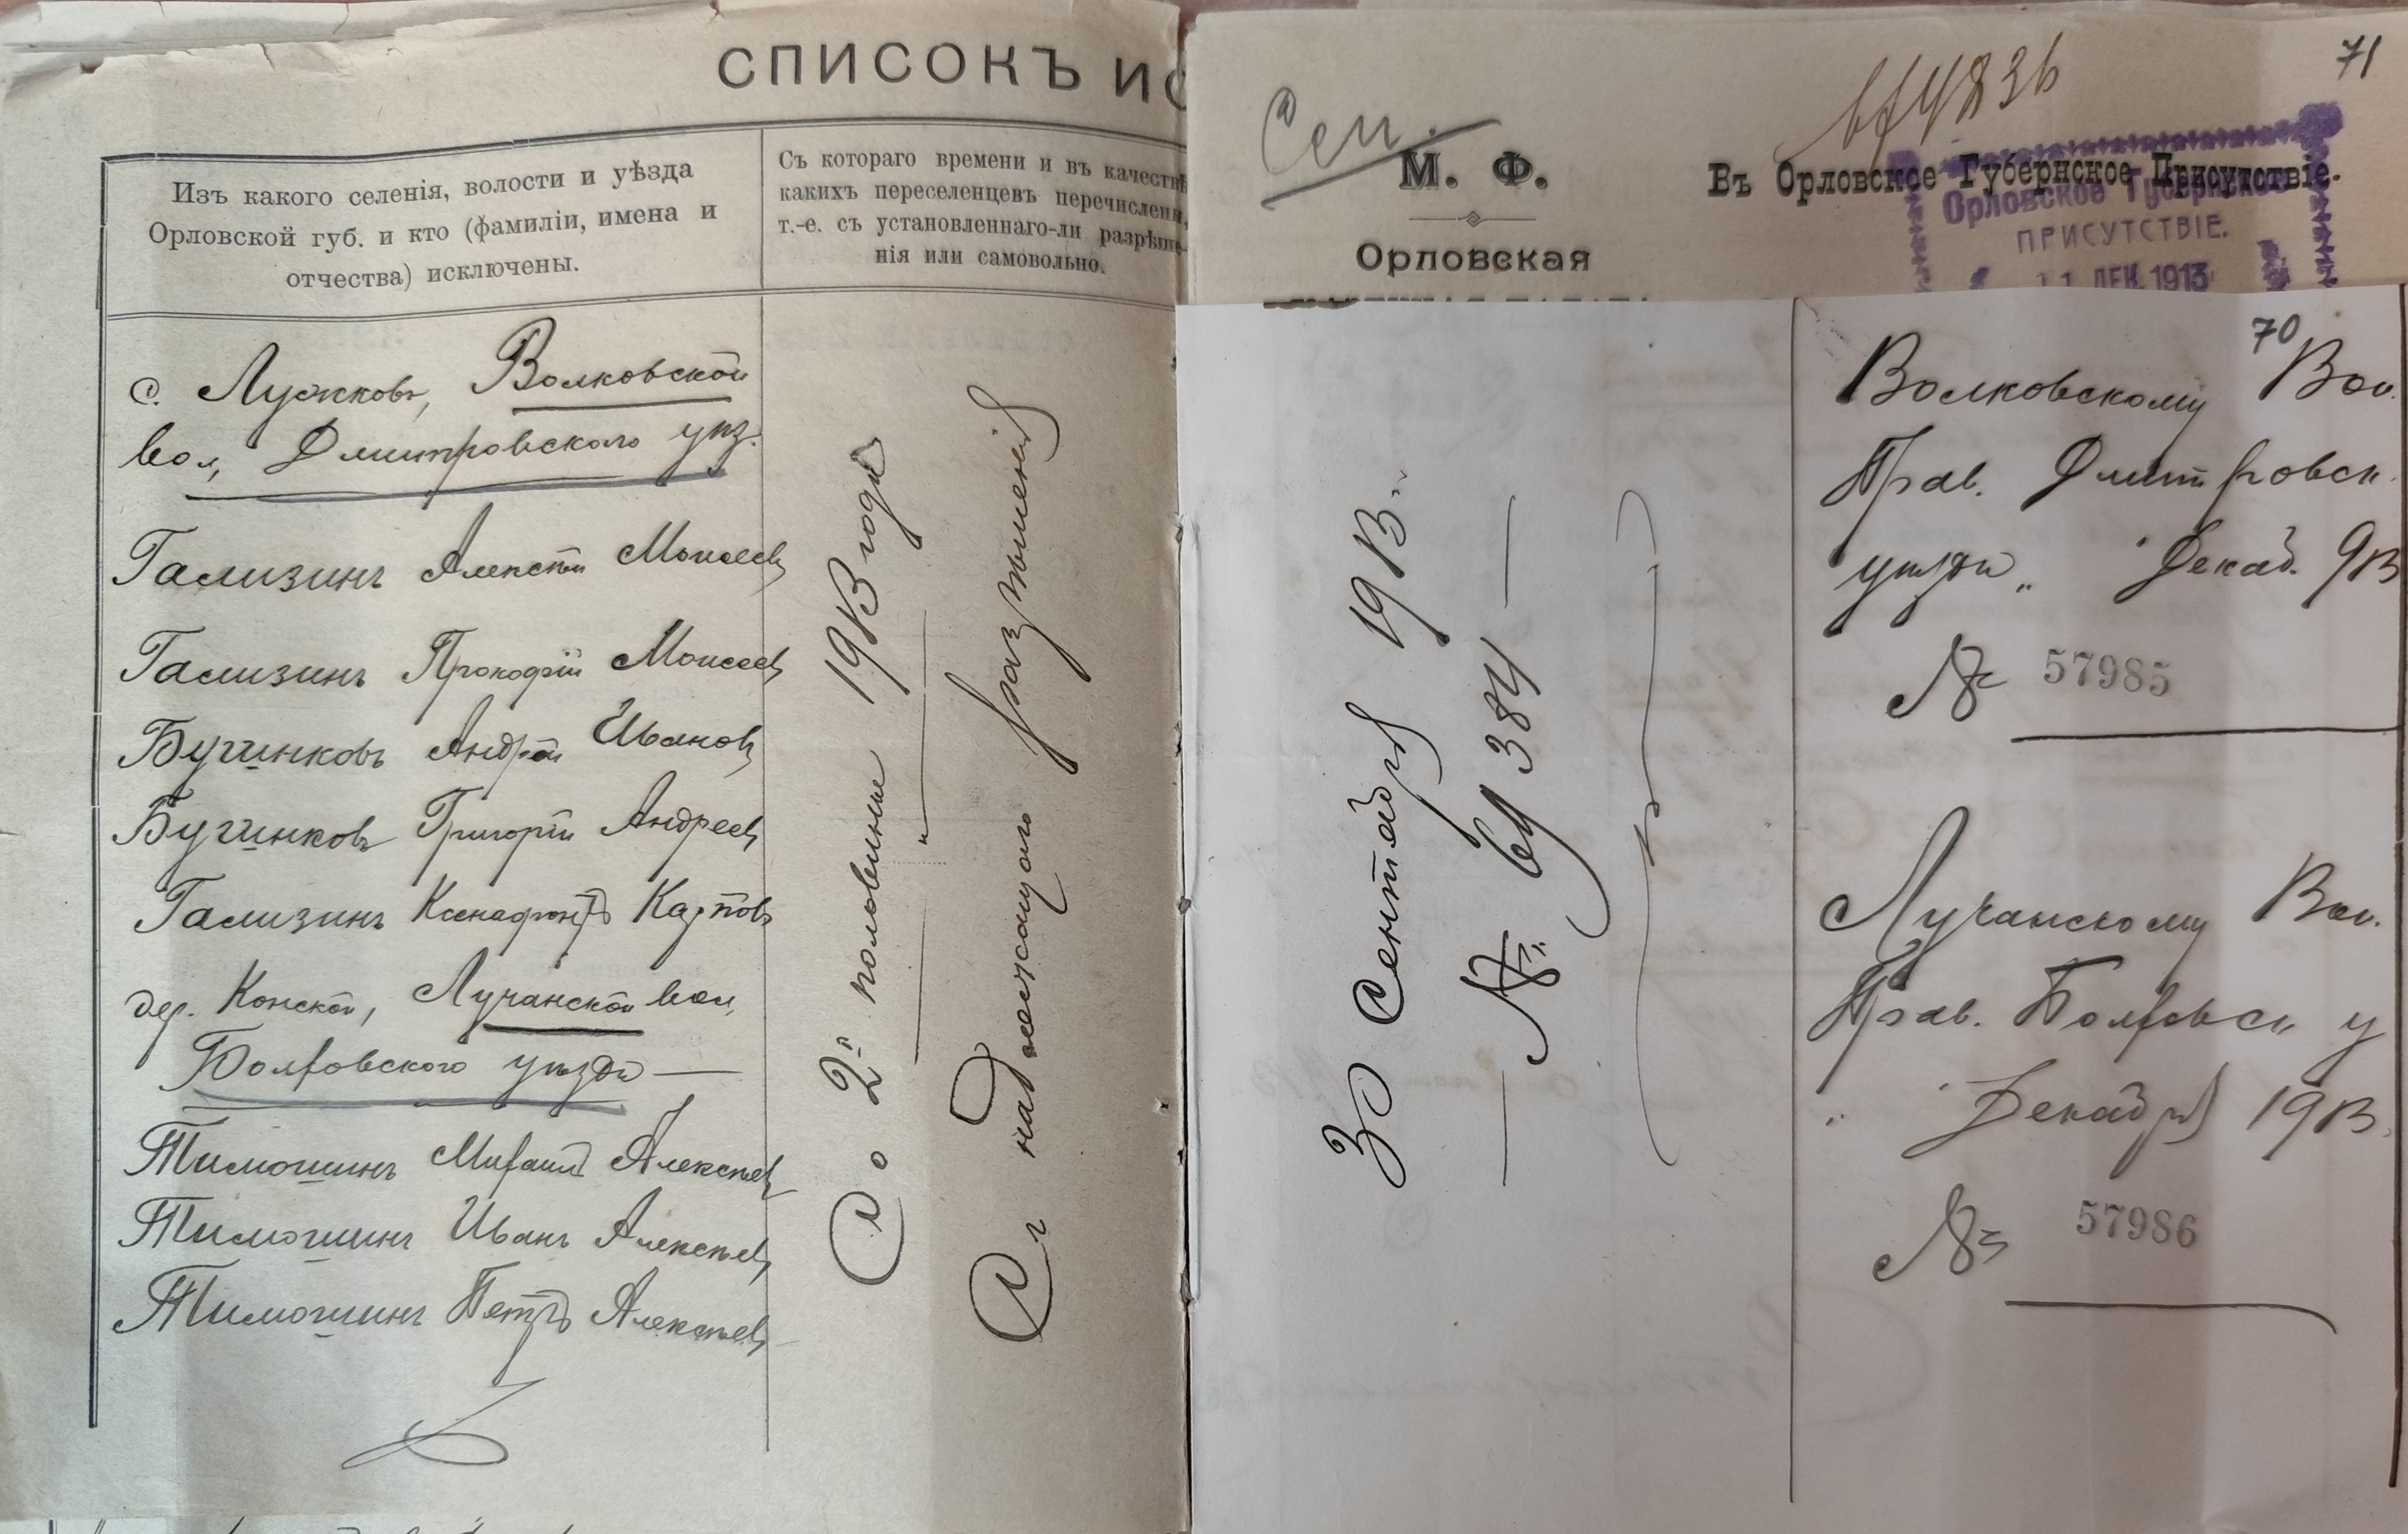 СПИСОКЪ ИС
Изъ какого селенія, волости и уѣзда
Орловской губ. и кто (фамиліи, имена и
отчества) исключены.
Съ котораго времени и въ качествѣ
какихъ переселенцевъ перечислены,
т.-е. съ установленнаго-ли разрѣше-
нія или самовольно.
с. Лужковъ, Волковской
вол., Дмитровского уѣз.
Гализинъ Алексѣй Моисеев
Гализинъ Прокофій Моисеев
Бугинковъ Андрей Иванов
Бугинковъ Григорій Андреев
Гализинъ Ксенафонтъ Карпов
дер. Конской, Лучанской вол,
Болховского уѣзда —
Тимошинъ Михаилъ Алексѣев
Тимошинъ Иванъ Алексѣев
Тимошинъ Петръ Алексѣев
Со 2й половины 1913 года
Съ надлежащаго разрѣшенія
71
Сем.
М. Ф.
Орловская
Въ Орловское Губернское Присутствіе.
Орловское Губернское
ПРИСУТСТВІЕ.
11 ДЕК. 1913
30 Сентября 1913.
— № 69384 —
70
Волковскому Вол.
Прав. Дмитровск.
уѣзда „ Декаб. 913
№ 57985
Лучанскому Вол.
Прав. Болховск у
„ Декабря 1913.
№ 57986